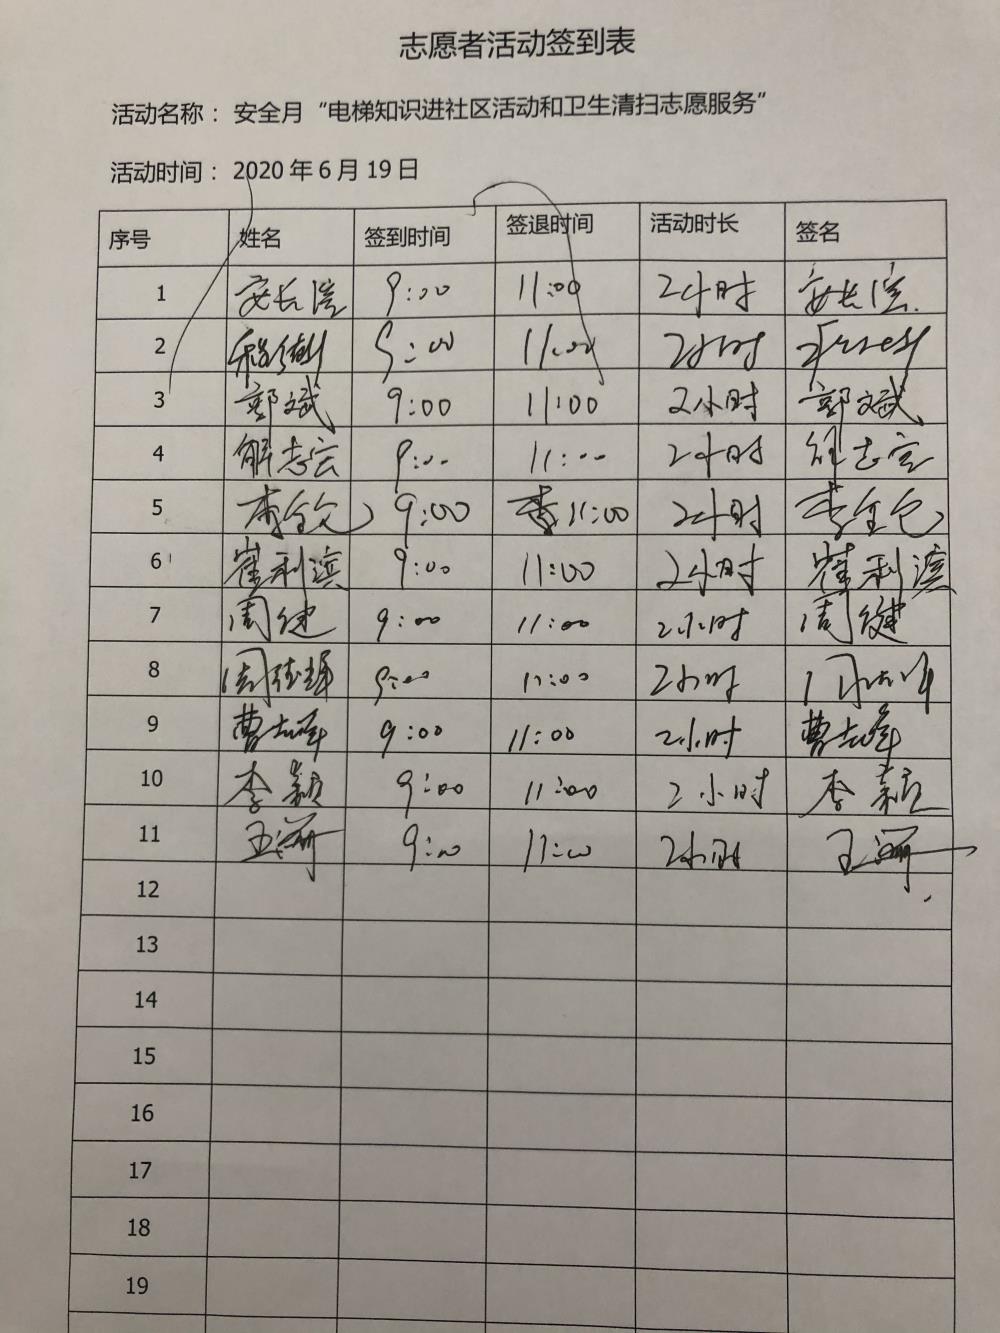 志愿者活动签到表
活动名称： 安全月“电梯知识进社区活动和卫生清扫志愿服务”
活动时间： 2020 年 6 月 19 日
序号 姓名 签到时间 签退时间 活动时长 签名
1 安长滨 9:00 11:00 2小时 安长滨
2 9:00 11:00 2小时
3 郭斌 9:00 11:00 2小时 郭斌
4 解志宏 9:00 11:00 2小时 解志宏
5 李全仓 9:00 11:00 2小时 李全仓
6 崔利滨 9:00 11:00 2小时 崔利滨
7 周健 9:00 11:00 2小时 周健
8 周 9:00 11:00 2小时 周
9 曹志峰 9:00 11:00 2小时 曹志峰
10 李颖 9:00 11:00 2小时 李颖
11 王珊 9:00 11:00 2小时 王珊
12
13
14
15
16
17
18
19